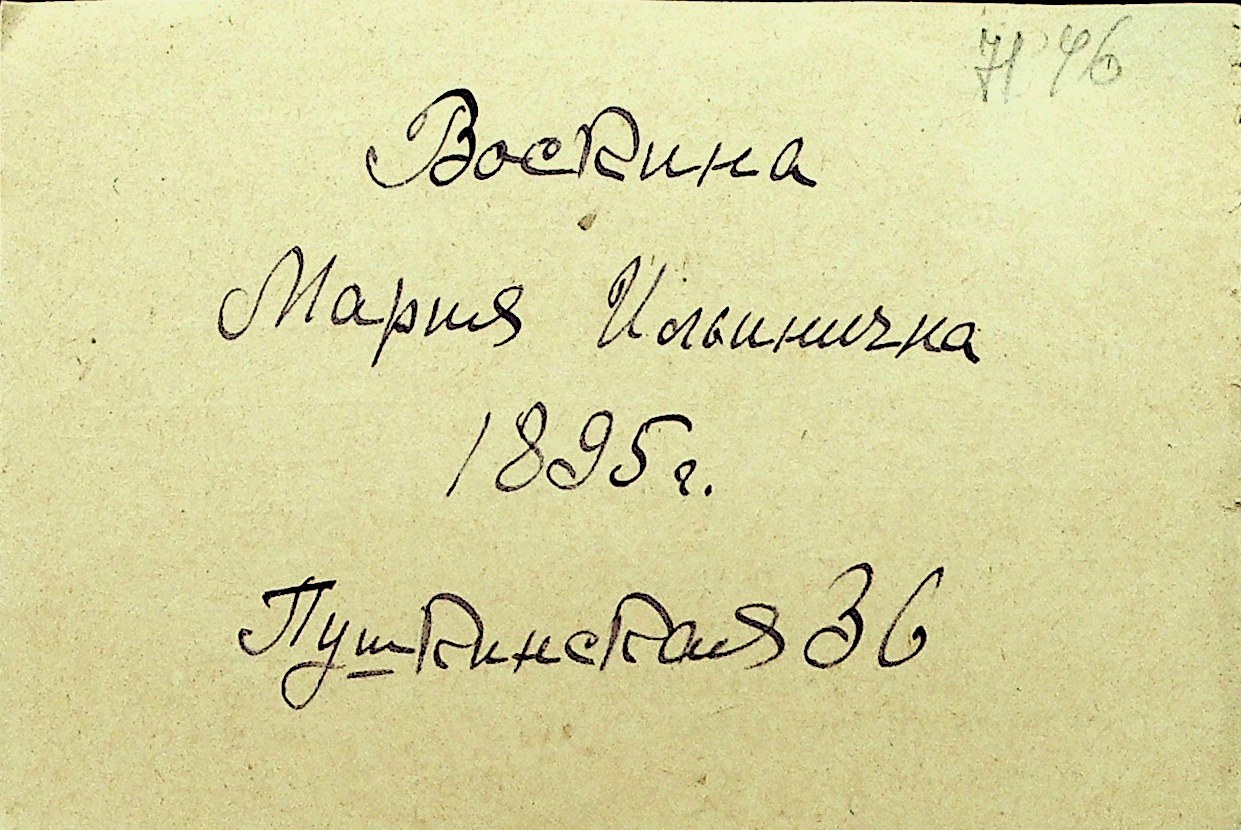 71 46
Воскина
Мария Ильинична
1895 г.
Пушкинская 36